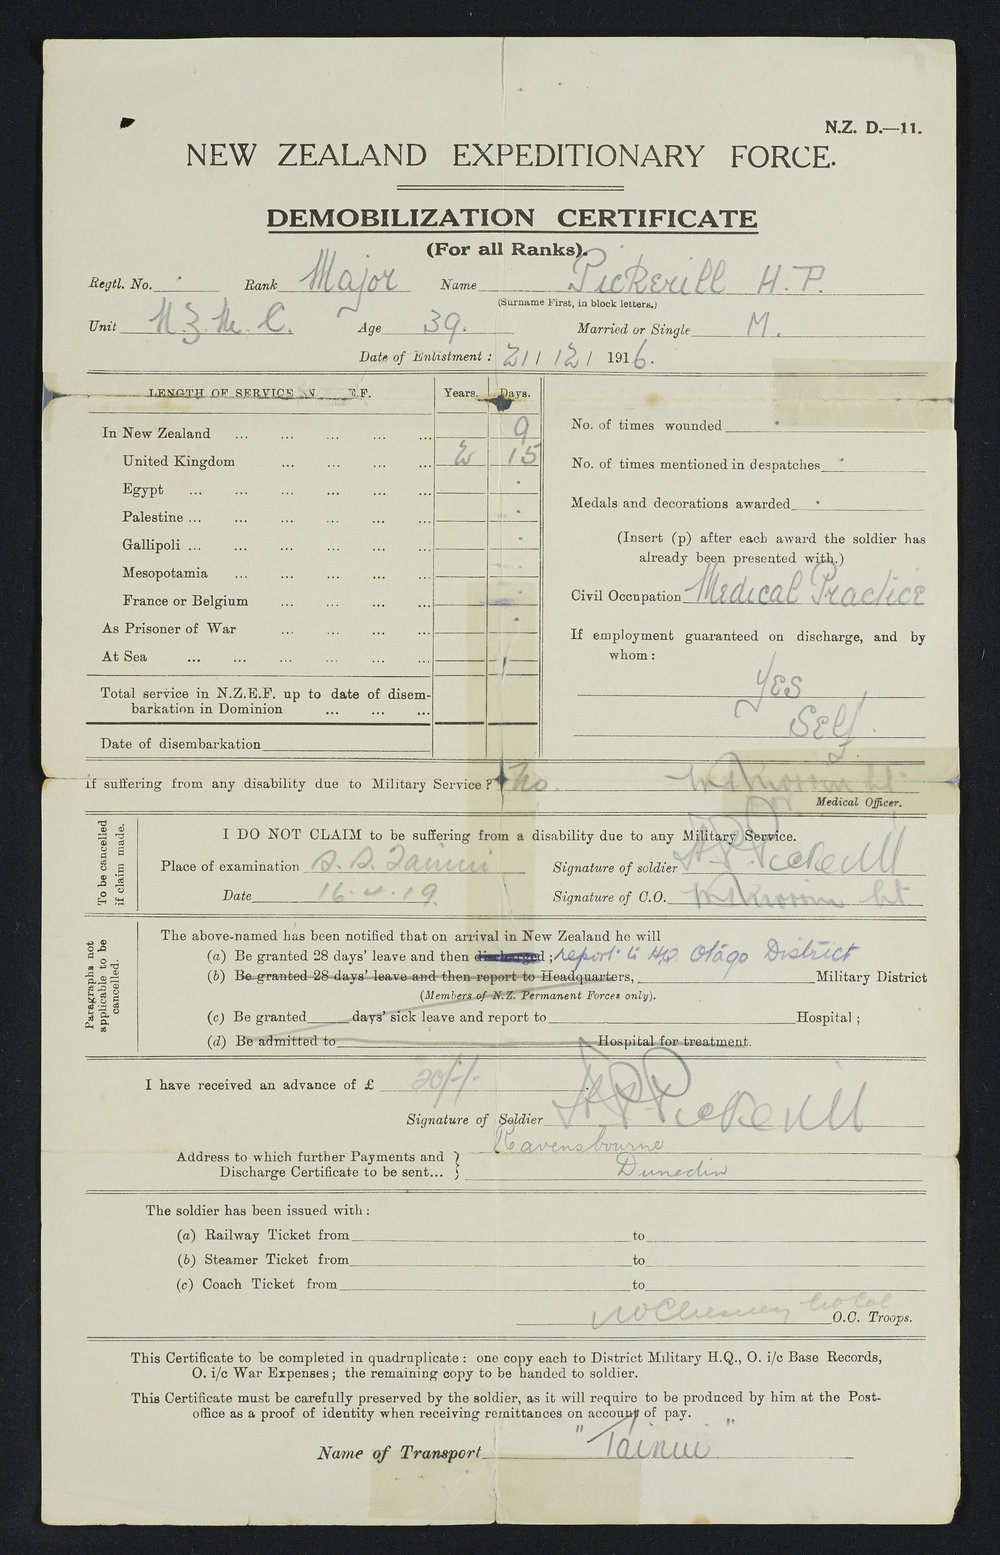 N.Z. D.—11.
NEW ZEALAND EXPEDITIONARY FORCE.
DEMOBILIZATION CERTIFICATE
(For all Ranks).
Regtl. No. Rank Major Name Pickerill H. P.
(Surname First, in block letters.)
Unit N.Z.M.C. Age 39. Married or Single M.
Date of Enlistment: 21/ 12/ 1916.
LENGTH OF SERVICE N. E.F. Years. Days.
In New Zealand ... ... ... ... ... 9
United Kingdom ... ... ... ... 2 15
Egypt ... ... ... ... ...
Palestine ... ... ... ... ... ...
Gallipoli ... ... ... ... ... ...
Mesopotamia ... ... ... ... ...
France or Belgium ... ... ... ...
As Prisoner of War ... ... ... ...
At Sea ... ... ... ... ... ...
Total service in N.Z.E.F. up to date of disem-
barkation in Dominion ... ... ...
Date of disembarkation
No. of times wounded
No. of times mentioned in despatches
Medals and decorations awarded
(Insert (p) after each award the soldier has
already been presented with.)
Civil Occupation Medical Practice
If employment guaranteed on discharge, and by
whom:
Yes
Self.
If suffering from any disability due to Military Service? No.
Medical Officer.
To be cancelled
if claim made.
I DO NOT CLAIM to be suffering from a disability due to any Military Service.
Place of examination S.S. Tainui Signature of soldier H.P. Pickerill
Date 16.4.19. Signature of C.O.
Paragraphs not
applicable to be
cancelled.
The above-named has been notified that on arrival in New Zealand he will
(a) Be granted 28 days' leave and then discharged; report to H.Q. Otago District
(b) Be granted 28 days' leave and then report to Headquarters, Military District
(Members of N.Z. Permanent Forces only).
(c) Be granted days' sick leave and report to Hospital;
(d) Be admitted to Hospital for treatment.
I have received an advance of £ 20/-/-
Signature of Soldier H P Pickerill
Address to which further Payments and Ravensbourne
Discharge Certificate to be sent... Dunedin
The soldier has been issued with:
(a) Railway Ticket from to
(b) Steamer Ticket from to
(c) Coach Ticket from to
O.C. Troops.
This Certificate to be completed in quadruplicate: one copy each to District Military H.Q., O. i/c Base Records,
O. i/c War Expenses; the remaining copy to be handed to soldier.
This Certificate must be carefully preserved by the soldier, as it will require to be produced by him at the Post-
office as a proof of identity when receiving remittances on account of pay.
Name of Transport "Tainui"